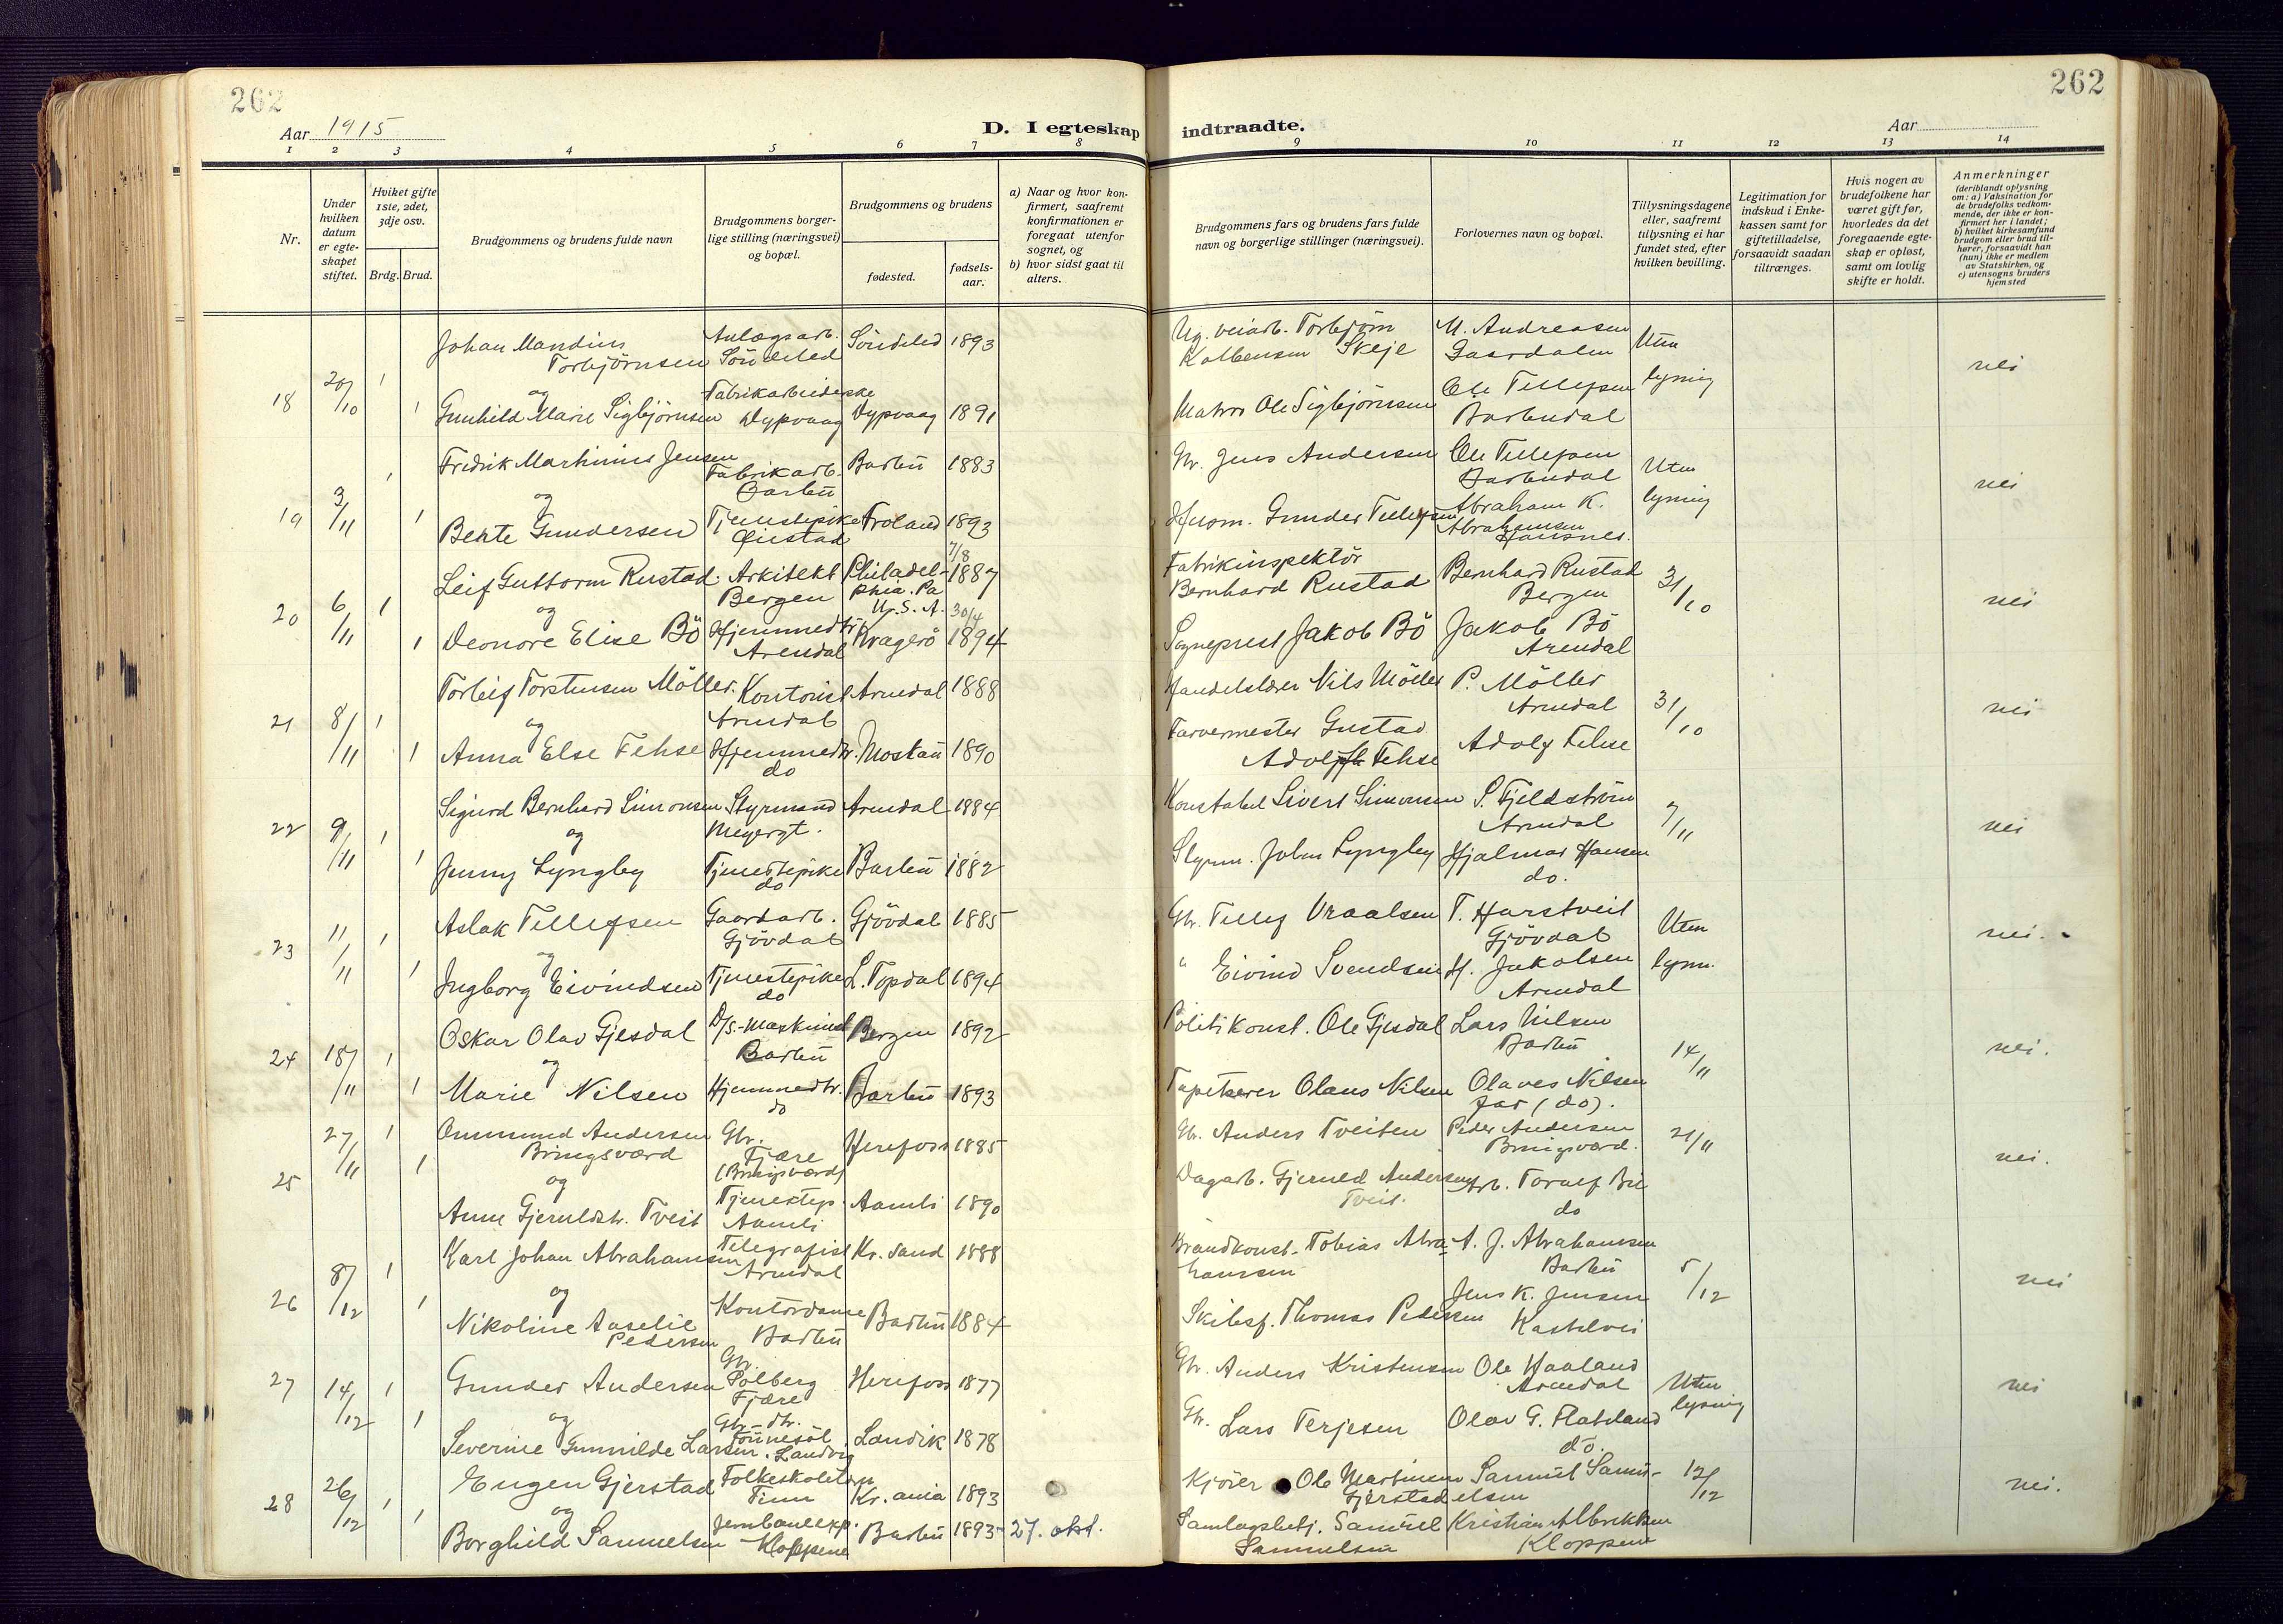 262
262
Aar 1915
D. I egteskap
indtraadte.
Aar
1 2 3 4 5 6 7 8
9 10 11 12 13 14
Nr.
Under hvilken datum er egteskapet stiftet.
Hviket gifte 1ste, 2det, 3dje osv.
Brdg. Brud.
Brudgommens og brudens fulde navn
Brudgommens borgerlige stilling (næringsvei) og bopæl.
Brudgommens og brudens
fødested.
fødselsaar.
a) Naar og hvor konfirmert, saafremt konfirmationen er foregaat utenfor sognet, og
b) hvor sidst gaat til alters.
Brudgommens fars og brudens fars fulde navn og borgerlige stillinger (næringsvei).
Forlovernes navn og bopæl.
Tillysningsdagene eller, saafremt tillysning ei har fundet sted, efter hvilken bevilling.
Legitimation for indskud i Enkekassen samt for giftetilladelse, forsaavidt saadan tiltrænges.
Hvis nogen av brudefolkene har været gift før, hvorledes da det foregaaende egteskap er opløst, samt om lovlig skifte er holdt.
Anmerkninger
(deriblandt oplysning om: a) Vaksination for de brudefolks vedkommende, der ikke er konfirmert her i landet;
b) hvilket kirkesamfund brudgom eller brud tilhører, forsaavidt han (hun) ikke er medlem av Statskirken, og
c) utensogns bruders hjemsted
18 20/10 1 Johan Mandius Torbjörnsen Anlægsarb. Söndeled Söndeled 1893 Ug. veiarb. Torbjörn Kolbensen Skeje M. Andreasen Gaardalen Uten
og
1 Gunhild Marie Sigbjörnsen Fabrikarbeiderske Dypvaag Dypvaag 1891 Matros Ole Sigbjörnsen Ole Tellefsen Barbudal lysning nei
19 3/11 1 Fredrik Marthinius Jensen Fabrikarb. Barbu Barbu 1883 Gbr. Jens Andersen Ole Tellefsen Barbudal Uten
og
1 Berte Gundersen Tjenestepike Öiestad Froland 1893 Husm. Gunder Tellefsen Abraham K. Abrahamsen lysning nei
20 6/11 1 Leif Guttorm Rustad Arkitekt Bergen Philadelphia. Pa U.S.A. 7/8 1887 Fabrikinspektör Bernhard Rustad Bernhard Rustad Bergen 31/10
og
1 Deonore Elise Bö Hjemmedtr. Arendal Kragerö 30/4 1894 Sogneprest Jakob Bö Jakob Bö Arendal nei
21 8/11 1 Torleif Torstensen Möller Kontorist Arendal Arendal 1888 Handelslærer Nils Möller P. Möller Arendal 31/10
og
1 Anna Else Fehse Hjemmedtr. do Moskau 1890 Farvermester Gustav Adolf Fehse Adolf Fehse nei
22 9/11 1 Sigurd Bernhard Simonsen Styrmand Meyergt. Arendal 1884 Konstabel Sivert Simonsen S. Fjeldström Arendal 7/11
og
1 Jenny Lyngby Tjenestepike do Barbu 1882 Styrm. John Lyngby Hjalmar Hansen do. nei
23 11/11 1 Aslak Tellefsen Gaardarb. Gjövdal Gjövdal 1885 Gbr. Tellef Vraalsen T. Harstveit Gjövdal Uten
og
1 Ingborg Eivindsen Tjenestepike do L. Topdal 1894 " Eivind Svendsen H. Jakobsen Arendal lysn. nei.
24 18/11 1 Oskar Olav Gjesdal D/S.-Maskinist Barbu Bergen 1892 Politikonst. Ole Gjesdal Lars Nilsen Barbu 14/11
og
1 Marie Nilsen Hjemmedtr. do Barbu 1893 Tapetserer Olaus Nilsen Olaves Nilsen far (do). nei.
25 27/11 1 Ommund Andersen Bringsværd Gbr. Fjære (Bringsværd) Herefoss 1885 Gbr. Anders Tveiten Peder Andersen Bringsværd. 21/11
og
1 Anne Gjeruldsdtr. Tveit Tjenestep. Aamli Aamli 1890 Dagarb. Gjeruld Andersen Tveit. Arb. Toralf do nei.
26 8/12 1 Karl Johan Abrahamsen Telegrafist Arendal Kr.sand 1888 Brandkonst. Tobias Abrahamsen A. J. Abrahamsen Barbu 5/12
og
1 Nikoline Amelie Pedersen Kontordame Barbu Barbu 1884 Skibsf. Thomas Pedersen Jens K. Jensen Kastelvei nei
27 14/12 1 Gunder Andersen Gbr. Solberg Fjære Herefoss 1877 Gbr. Anders Kristensen Ole Haaland Arendal Uten
og
1 Severine Gunnilde Larsen Gbr. dtr. Tönnesöl Landvig Landvik 1878 Gbr. Lars Terjesen Olav G. Flateland do. lysning nei
28 26/12 1 Eugen Gjerstad Folkeskolelærer Tinn Kr.ania 1893 Kjörer Ole Martinsen Gjerstad Samuel Samuelsen 12/12
og
1 Borghild Samuelsen Jernbaneexp. Kloppene Barbu 1893 27. okt. Samlagsbetj. Samuel Samuelsen Kristian Albrektsen Kloppene nei.